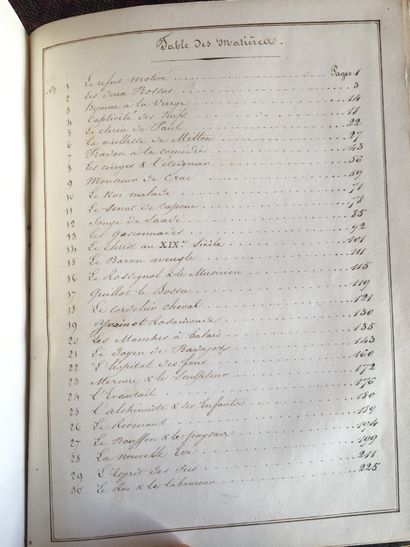 Table des Matières.
Nos Pages
1 Le refus motivé 1
2 Les deux Bossus 3
3 Hymne à la Vierge 14
4 Captivité des Juifs 15
5 Le chien de 22
6 La vieillesse de Milton 27
7 Pradon à la comédie 43
8 Les cierges & l'éteignoir 56
9 Monsieur de Crac 59
10 Le Roi malade 71
11 Le Sénat de Capoue 78
12 Songe de Saadi 85
13 Les Gasconnades 92
14 Le Christ au XIXme Siècle 101
15 Le Baron aveugle 111
16 Le Rossignol & le Musicien 115
17 Guillot le Bossu 119
18 Le Cordelier cheval 121
19 Rosamonde 130
20 Les Manches à balais 135
21 Le Doyen de Badajoz 143
22 L'hôpital des fous 160
23 Mercure & le Sculpteur 172
24 L'Eventail 176
25 L'alchimiste & ses Enfants 180
26 Le Revenant 189
27 Le Bouffon & le paysan 194
28 La nouvelle Eve 199
29 L'Esprit des 211
30 Le Roi & le laboureur 225